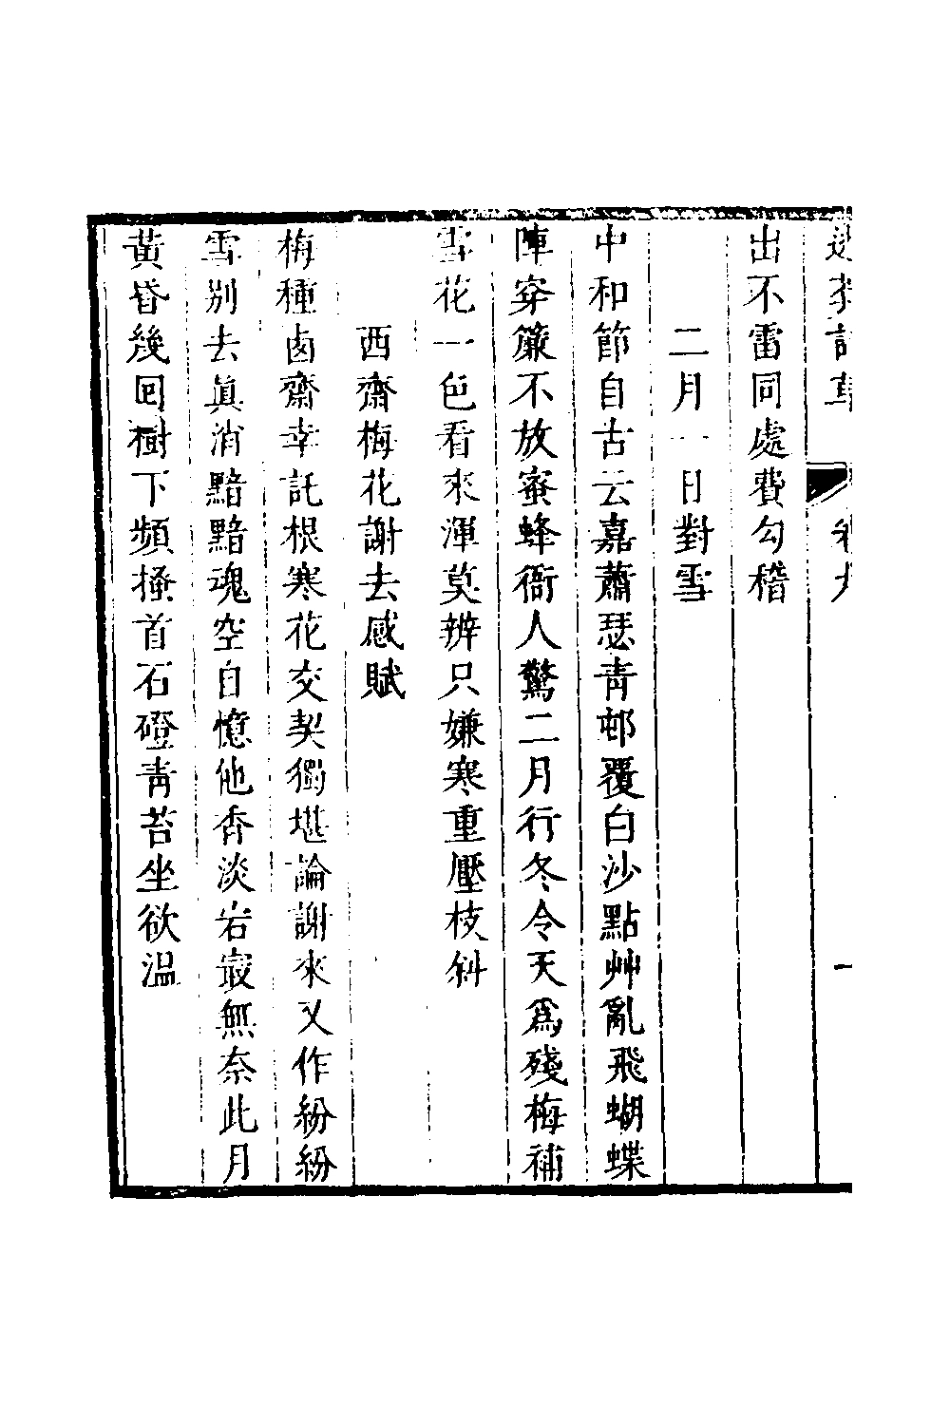 出不雷同處費勾稽
二月一日對雪
中和節自古云嘉蕭瑟青邨覆白沙點艸亂飛蝴蝶
陣穿簾不放蜜蜂衙人驚二月行冬令天爲殘梅補
雪花一色看來渾莫辨只嫌寒重壓枝斜
西齋梅花謝去感賦
梅種卤齋幸託根寒花交契獨堪論謝來又作紛紛
雪别去眞消黯黯魂空自憶他香淡宕寂無奈此月
黃昏幾回樹下頻搔首石磴靑苔坐欲溫